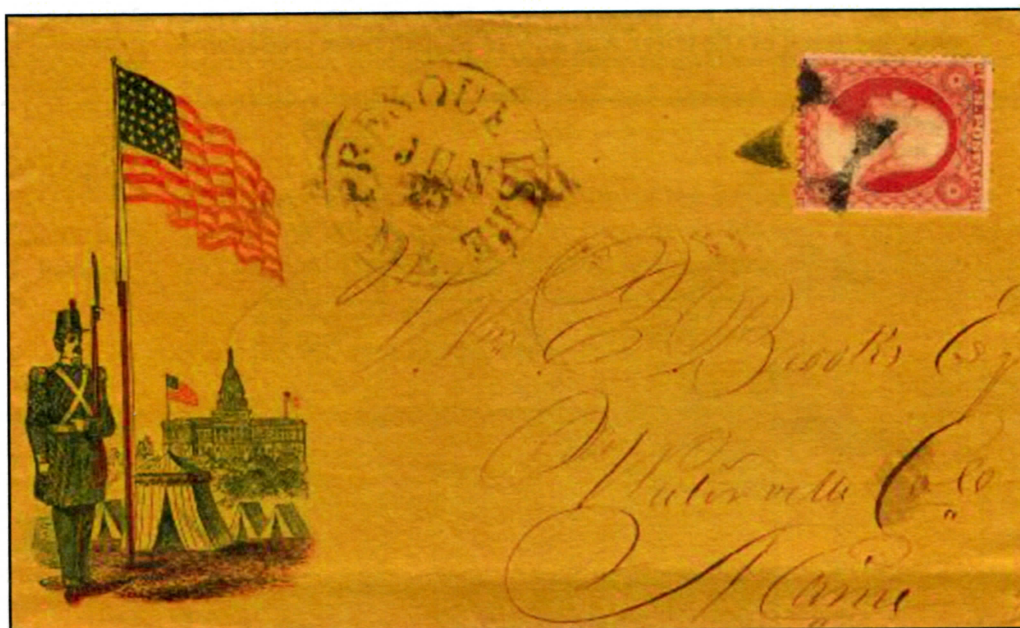 PRESQUE ISLE
JUN
ME
Wm E Brooks Esq
Waterville Col
Maine